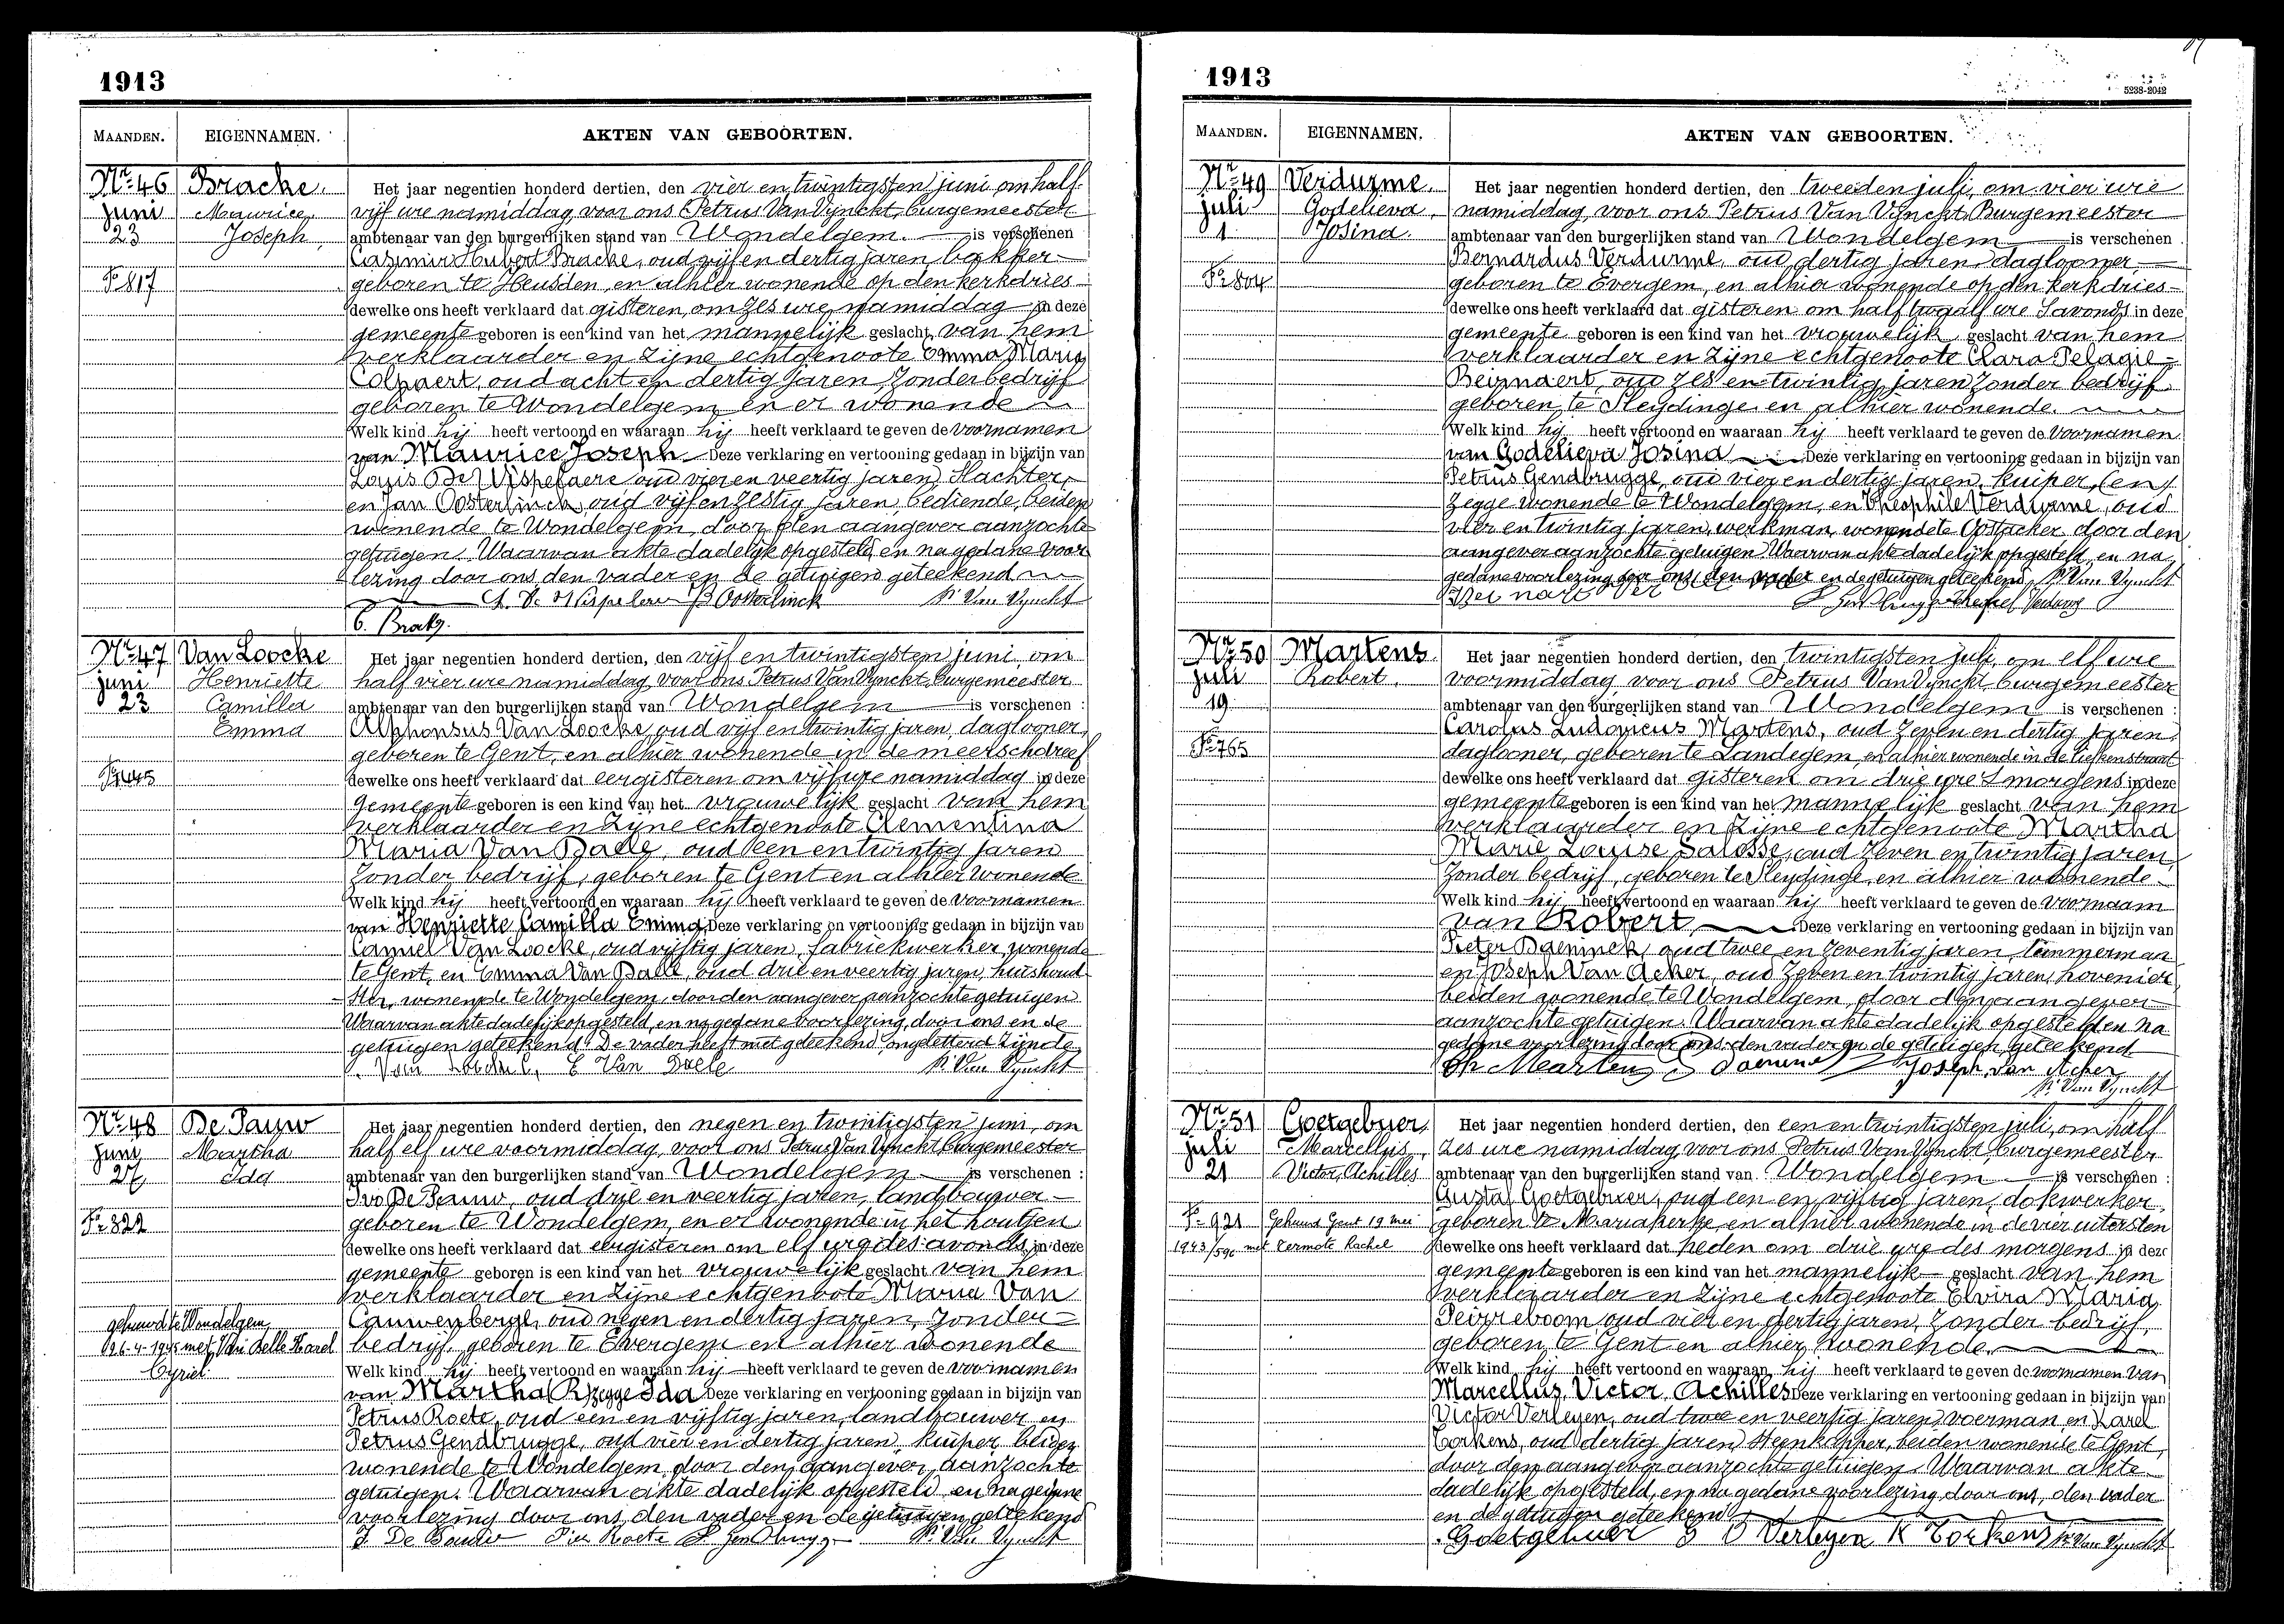 1913
MAANDEN. EIGENNAMEN. AKTEN VAN GEBOORTEN.
Nr. 46 Bracke.
juni Maurice,
23 Joseph,
Fo 817
Het jaar negentien honderd dertien, den vier en twintigsten juni, om half
vijf ure namiddag, voor ons Petrus Van Vynckt, burgemeester
ambtenaar van den burgerlijken stand van Wondelgem. is verschenen
Casimir Hubert Bracke, oud vijf en dertig jaren, bakker
geboren te Heusden, en alhier wonende op den kerkdries
dewelke ons heeft verklaard dat gisteren, om zes ure namiddag in deze
gemeente geboren is een kind van het mannelijk geslacht, van hem
verklaarder en zijne echtgenoote Emma Maria
Colpaert, oud acht en dertig jaren zonder bedrijf
geboren te Wondelgem en er wonende
Welk kind hij heeft vertoond en waaraan hij heeft verklaard te geven de voornamen
van Maurice Joseph. Deze verklaring en vertooning gedaan in bijzijn van
Louis De Wispelaere oud vier en veertig jaren, slachter,
en Jan Oosterlinck, oud vijf en zestig jaren, bediende, beiden
wonende te Wondelgem, door den aangever aanzochte
getuigen. Waarvan akte dadelijk opgesteld en na gedane voor
lezing door ons, den vader en de getuigen geteekend
L. De Wispelaere Oosterlinck P. Van Vynckt
C. Bracke.
Nr. 47 Van Loocke
juni Henriette
23 Camilla
Emma
Fo 1445
Het jaar negentien honderd dertien, den vijf en twintigsten juni, om
half vier ure namiddag, voor ons Petrus Van Vynckt, burgemeester
ambtenaar van den burgerlijken stand van Wondelgem is verschenen :
Alphonsus Van Loocke, oud vijf en twintig jaren, daglooner,
geboren te Gent, en alhier wonende in de meerschdreef
dewelke ons heeft verklaard dat eergisteren om vijf ure namiddag in deze
gemeente geboren is een kind van het vrouwelijk geslacht van hem
verklaarder en zijne echtgenoote Clementina
Maria Van Daele, oud een en twintig jaren
zonder bedrijf, geboren te Gent en alhier wonende
Welk kind hij heeft vertoond en waaraan hij heeft verklaard te geven de voornamen
van Henriette Camilla Emma. Deze verklaring en vertooning gedaan in bijzijn van
Camiel Van Loocke, oud vijftig jaren, fabriekwerker, wonende
te Gent, en Emma Van Daele, oud drie en veertig jaren, huishoud
ster, wonende te Wondelgem, door den aangever aanzochte getuigen
Waarvan akte dadelijk opgesteld, en na gedane voorlezing, door ons en de
getuigen geteekend. De vader heeft niet geteekend ongeletterd zijnde.
Van Loocke C, E Van Daele P. Van Vynckt
Nr. 48 De Pauw
juni Martha
27 Ida
Fo 822
gehuwd te Wondelgem,
26-4-1945 met Van Belle Karel
Cyriel
Het jaar negentien honderd dertien, den negen en twintigsten juni, om
half elf ure voormiddag, voor ons Petrus Van Vynckt, burgemeester
ambtenaar van den burgerlijken stand van Wondelgem is verschenen :
Ivo De Pauw, oud drie en veertig jaren, landbouwer
geboren te Wondelgem, en er wonende in het houtjen
dewelke ons heeft verklaard dat eergisteren om elf ure des avonds in deze
gemeente geboren is een kind van het vrouwelijk geslacht van hem
verklaarder en zijne echtgenoote Maria Van
Cauwenberge, oud negen en dertig jaren, zonder
bedrijf, geboren te Evergem en alhier wonende
Welk kind hij heeft vertoond en waaraan hij heeft verklaard te geven de voornamen
van Martha (R) zegge Ida Deze verklaring en vertooning gedaan in bijzijn van
Petrus Roete, oud een en vijftig jaren, landbouwer en
Petrus Gendbrugge, oud vier en dertig jaren, kuiper, beiden
wonende te Wondelgem, door den aangever, aanzochte
getuigen. Waarvan akte dadelijk opgesteld en na gedane
voorlezing door ons, den vader en de getuigen geteekend
I. De Pauw Pier Roete P. Gendbrugge P. Van Vynckt
1913
5238-2042
MAANDEN. EIGENNAMEN. AKTEN VAN GEBOORTEN.
Nr. 49 Verdurme
juli Godelieva,
1 Josina.
Fo 804
Het jaar negentien honderd dertien, den tweeden juli, om vier ure
namiddag, voor ons Petrus Van Vynckt, Burgemeester
ambtenaar van den burgerlijken stand van Wondelgem is verschenen
Bernardus Verdurme, oud dertig jaren, daglooner,
geboren te Evergem, en alhier wonende op den kerkdries
dewelke ons heeft verklaard dat gisteren om half twaalf ure s'avonds in deze
gemeente geboren is een kind van het vrouwelijk geslacht van hem
verklaarder en zijne echtgenoote Clara Pelagie
Beirnaert, oud zes en twintig jaren zonder bedrijf
geboren te Sleydinge en alhier wonende.
Welk kind hij heeft vertoond en waaraan hij heeft verklaard te geven de voornamen
van Godelieva Josina Deze verklaring en vertooning gedaan in bijzijn van
Petrus Gendbrugge, oud vier en dertig jaren, kuiper, (en)
zegge wonende te Wondelgem, en Theophile Verdurme, oud
vier en twintig jaren, werkman, wonende te Oostacker door den
aangever aanzochte getuigen. Waarvan akte dadelijk opgesteld, en na
gedane voorlezing door ons, den vader en de getuigen geteekend. P. Van Vynckt
Bernard Verdurme P. Gendbrugge Theofiel Verdurme
Nr. 50 Martens
juli Robert.
19
Fo 765
Het jaar negentien honderd dertien, den twintigsten juli, om elf ure
voormiddag, voor ons Petrus Van Vynckt, burgemeester
ambtenaar van den burgerlijken stand van Wondelgem is verschenen :
Carolus Ludovicus Martens, oud zeven en dertig jaren,
daglooner, geboren te Landegem, en alhier wonende in de liefkenstraat
dewelke ons heeft verklaard dat gisteren om drie ure s'morgens in deze
gemeente geboren is een kind van het mannelijk geslacht van hem
verklaarder en zijne echtgenoote Martha
Marie Louise Salosse, oud zeven en twintig jaren,
zonder bedrijf, geboren te Sleydinge, en alhier wonende.
Welk kind hij heeft vertoond en waaraan hij heeft verklaard te geven de voornaam
van Robert Deze verklaring en vertooning gedaan in bijzijn van
Pieter Daeninck, oud twee en zeventig jaren, timmerman
en Joseph Van Acker, oud zeven en twintig jaren, hovenier
beiden wonende te Wondelgem, door den aangever
aanzochte getuigen. Waarvan akte dadelijk opgesteld en na
gedane voorlezing door ons, den vader en de getuigen, geteekend
Ch Martens Joseph van Acker
P. Van Vynckt
Nr. 51 Goetgebuer,
juli Marcellus,
21 Victor, Achilles
Fo 921 Gehuwd Gent 19 mei
1943/596 met Vermote Rachel
Het jaar negentien honderd dertien, den een en twintigsten juli, om half
zes ure namiddag, voor ons Petrus Van Vynckt, burgemeester
ambtenaar van den burgerlijken stand van Wondelgem is verschenen :
Gustaf Goetgebuer, oud een en vijftig jaren, dokwerker,
geboren te Mariakerke, en alhier wonende in de vier uitersten
dewelke ons heeft verklaard dat heden om drie ure des morgens in deze
gemeente geboren is een kind van het mannelijk geslacht van hem
verklaarder en zijne echtgenoote Elvira Maria
Peireboom, oud vier en dertig jaren, zonder bedrijf,
geboren te Gent en alhier wonende.
Welk kind hij heeft vertoond en waaraan hij heeft verklaard te geven de voornamen van
Marcellus, Victor, Achilles Deze verklaring en vertooning gedaan in bijzijn van
Victor Verleyen, oud twee en veertig jaren, voerman en Karel
Corkens, oud dertig jaren, steenkapper, beiden wonende te Gent,
door den aangever aanzochte getuigen. Waarvan akte
dadelijk opgesteld, en na gedane voorlezing door ons, den vader
en de getuigen geteekend
Goetgebuer G V Verleyen K Corkens P. Van Vynckt